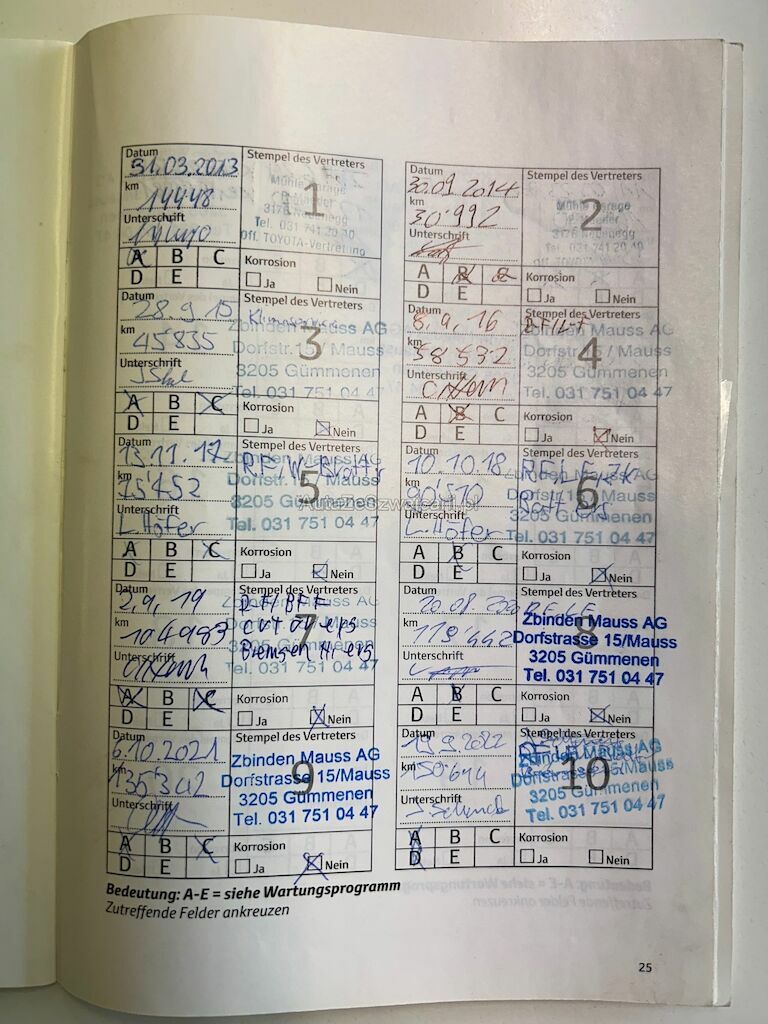 Datum
31.03.2013
km
14448
Unterschrift
Stempel des Vertreters
1
Mühle Garage
3176 Neuenegg
Tel. 031 741 20 10
Off. TOYOTA-Vertretung
A B C
D E
Korrosion
Ja Nein
Datum
30.09 2014
km
30'992
Unterschrift
Stempel des Vertreters
2
Mühle Garage
3176 Neuenegg
Tel. 031 741 20 10
Off. TOYOTA-Vertretung
A B C
D E
Korrosion
Ja Nein
Datum
28.9.15
km
45835
Unterschrift
Stempel des Vertreters
3
Zbinden Mauss AG
Dorfstr. 15 / Mauss
3205 Gümmenen
Tel. 031 751 04 47
A B C
D E
Korrosion
Ja Nein
Datum
8.9.16
km
58532
Unterschrift
Stempel des Vertreters
4
Zbinden Mauss AG
Dorfstr. 15 / Mauss
3205 Gümmenen
Tel. 031 751 04 47
A B C
D E
Korrosion
Ja Nein
Datum
13.11.17
km
75'452
Unterschrift
L. Höfer
Stempel des Vertreters
5
Zbinden Mauss AG
Dorfstr. 15 / Mauss
3205 Gümmenen
Tel. 031 751 04 47
A B C
D E
Korrosion
Ja Nein
Datum
10.10.18
km
90'510
Unterschrift
L. Höfer
Stempel des Vertreters
6
Zbinden Mauss AG
Dorfstr. 15 / Mauss
3205 Gümmenen
Tel. 031 751 04 47
A B C
D E
Korrosion
Ja Nein
Datum
2.9.19
km
104983
Unterschrift
Stempel des Vertreters
7
Bremsen
A B C
D E
Korrosion
Ja Nein
Datum
20.08.2020
km
119'442
Unterschrift
Stempel des Vertreters
8
Zbinden Mauss AG
Dorfstrasse 15/Mauss
3205 Gümmenen
Tel. 031 751 04 47
A B C
D E
Korrosion
Ja Nein
Datum
6.10.2021
km
135'342
Unterschrift
Stempel des Vertreters
9
Zbinden Mauss AG
Dorfstrasse 15/Mauss
3205 Gümmenen
Tel. 031 751 04 47
A B C
D E
Korrosion
Ja Nein
Datum
19.9.2022
km
150'644
Unterschrift
Stempel des Vertreters
10
Zbinden Mauss AG
Dorfstrasse 15/Mauss
3205 Gümmenen
Tel. 031 751 04 47
A B C
D E
Korrosion
Ja Nein
Bedeutung: A-E = siehe Wartungsprogramm
Zutreffende Felder ankreuzen
25